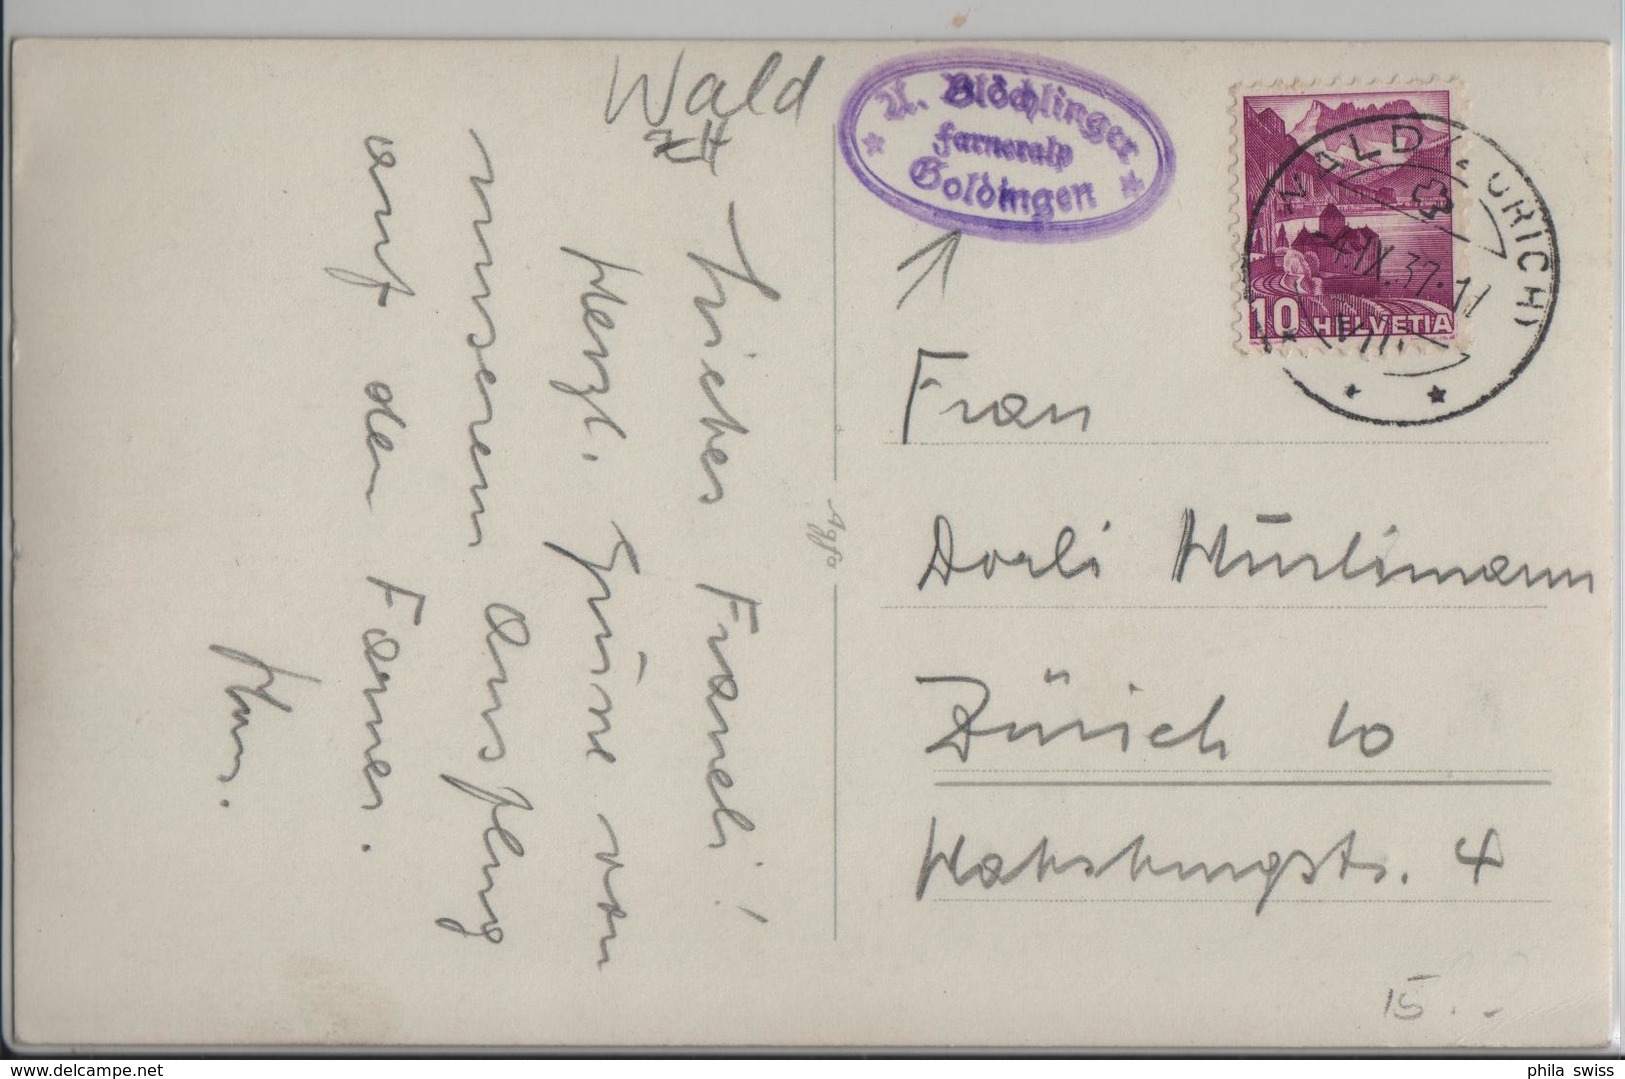 Wald
ZH
A. Blöchlinger
Farneralp
Goldingen
WALD (ZÜRICH)
-4.IX.37.11
10 HELVETIA
Liebes Franeli!
Herzl. Grüsse von
unserem Ausflug
auf den Farner.
Hans.
Agfa
Frau
Dorli Hürlimann
Zürich 10
4
15.--
phila swiss
www.delcampe.net